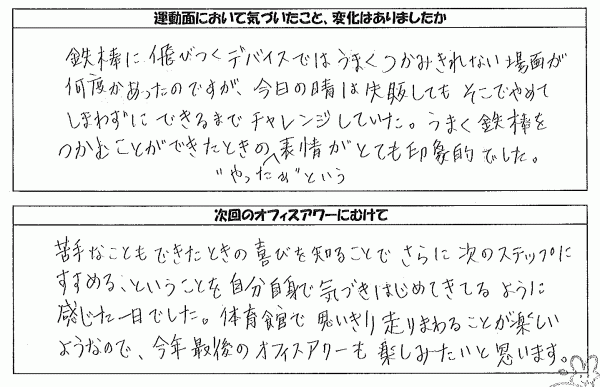 運動面において気づいたこと、変化はありましたか
鉄棒に飛びつくデバイスではうまくつかみきれない場面が
何度かあったのですが、今日の時は失敗してもそこでやめて
しまわずにできるまでチャレンジしていた。うまく鉄棒を
つかむことができたときの表情がとても印象的でした。
"やったぁ"という
次回のオフィスアワーにむけて
苦手なこともできたときの喜びを知ることでさらに次のステップに
すすめる、ということを自分自身で気づきはじめてきてるように
感じた一日でした。体育館で思いきり走りまわることが楽しい
ようなので、今年最後のオフィスアワーも楽しみたいと思います。